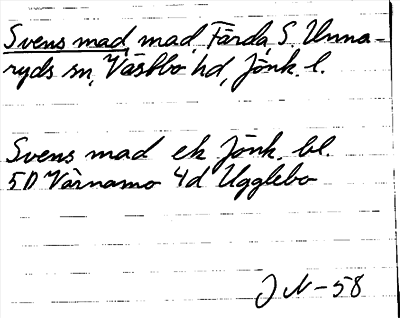 Svens mad, mad, Färda, S. Unna-
ryds sn, Västbo hd, Jönk. l.
Svens mad ek Jönk. bl.
5D Värnamo 4d Ugglebo
JN-58